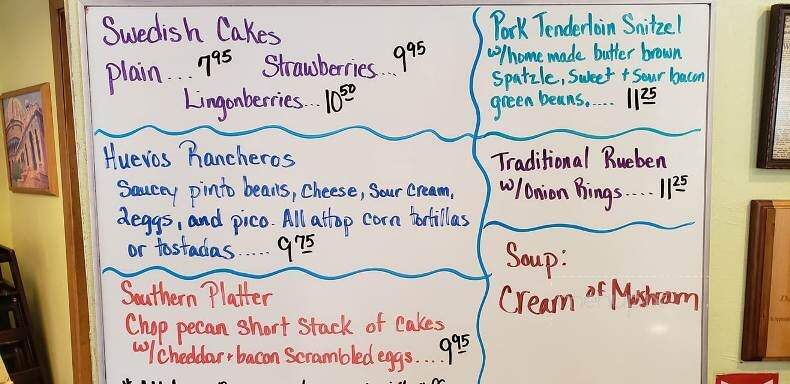 Swedish Cakes
Plain .... 7.95 Strawberries... 9.95
Lingonberries... 10.50
Huevos Rancheros
Saucey pinto beans, Cheese, Sour Cream,
2eggs, and pico. All attop corn tortillas
or tostadas..... 9.75
Southern Platter
Chop pecan Short Stack of Cakes
w/Cheddar + bacon Scrambled eggs.... 9.95
Pork Tenderloin Snitzel
w/home made butter brown
Spatzle, Sweet + Sour bacon
green beans..... 11.25
Traditional Rueben
w/Onion Rings.... 11.25
Soup:
Cream of Mushroom